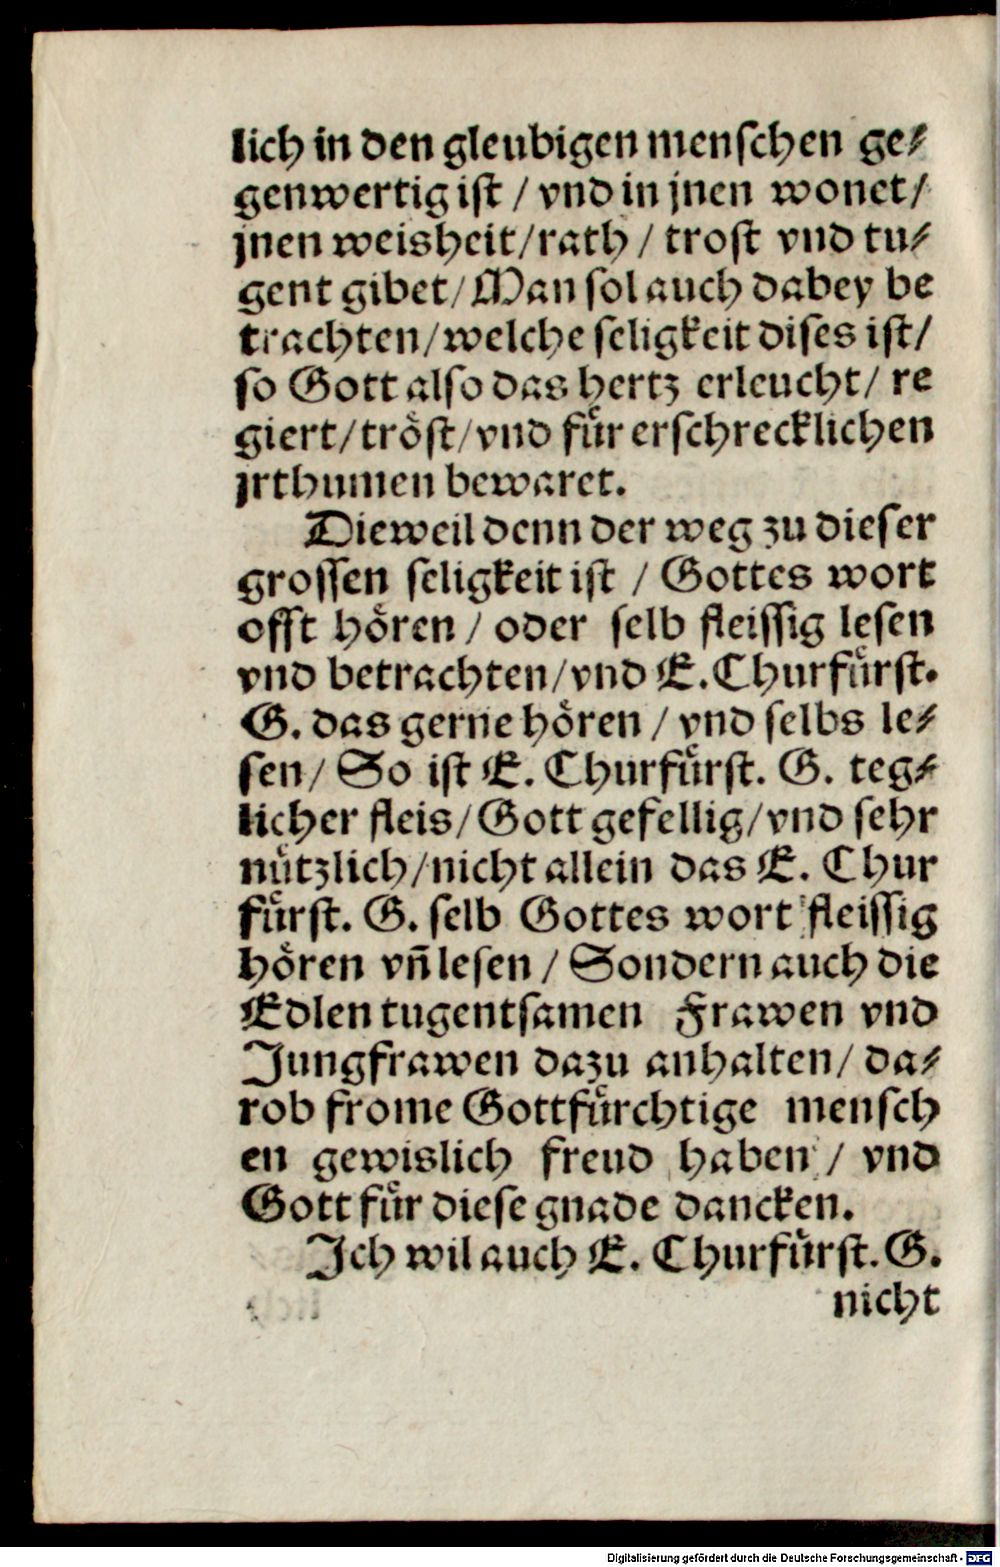 lich in den gleubigen menschen ge⸗
genwertig ist / vnd in jnen wonet/
jnen weisheit/rath / trost vnd tu⸗
gent gibet/ Man sol auch dabey be
trachten/welche seligkeit dises ist/
so Gott also das hertz erleucht/ re
giert/troͤst/vnd fuͤr erschrecklichen
jrthumen bewaret.
Dieweil denn der weg zu dieser
grossen seligkeit ist / Gottes wort
offt hoͤren / oder selb fleissig lesen
vnd betrachten/vnd E.Churfuͤrst.
G. das gerne hoͤren / vnd selbs le⸗
sen/ So ist E. Churfuͤrst. G. teg⸗
licher fleis/Gott gefellig/vnd sehr
nuͤtzlich/nicht allein das E. Chur
fuͤrst. G. selb Gottes wort fleissig
hoͤren vñ lesen / Sondern auch die
Edlen tugentsamen Frawen vnd
Jungfrawen dazu anhalten/ da⸗
rob frome Gottfuͤrchtige mensch
en gewislich freud haben / vnd
Gott fuͤr diese gnade dancken.
Jch wil auch E. Churfuͤrst. G.
nicht
Digitalisierung gefördert durch die Deutsche Forschungsgemeinschaft - DFG